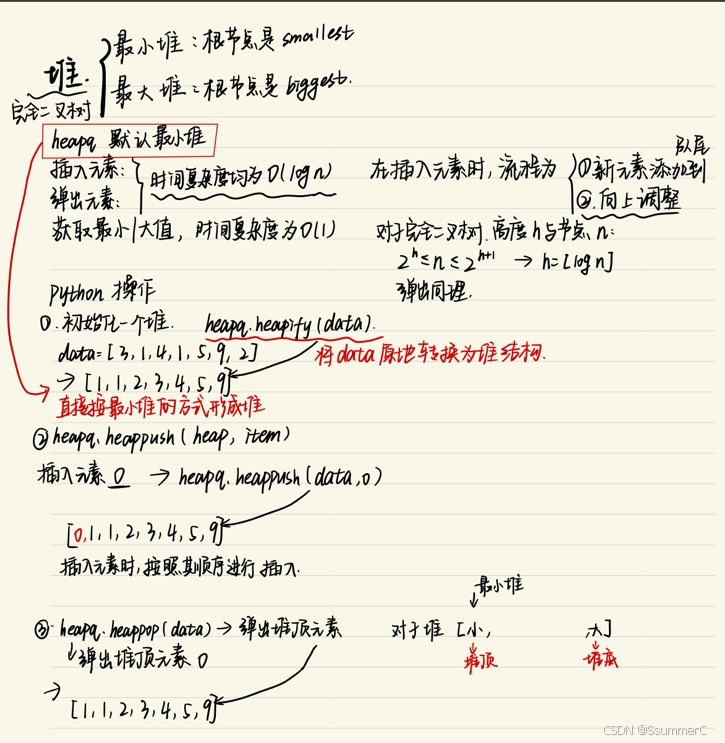 堆.
完全二叉树
最小堆：根节点是 smallest
最大堆：根节点是 biggest.
heapq 默认最小堆
插入元素：
弹出元素：
时间复杂度均为 O(log n)
获取最小/大值，时间复杂度为 O(1)
在插入元素时，流程为
①新元素添加到队尾
②.向上调整
对于完全二叉树.高度 h 与节点 n：
2^h ≤ n ≤ 2^(h+1) → h=⌊log n⌋
弹出同理.
python 操作
①.初始化一个堆. heapq.heapify(data).
data=[3,1,4,1,5,9,2]
将data原地转换为堆结构.
→ [1,1,2,3,4,5,9]
直接按最小堆的方式形成堆
② heapq.heappush(heap, item)
插入元素 0 → heapq.heappush(data,0)
[0,1,1,2,3,4,5,9]
插入元素时,按照其顺序进行插入.
③ heapq.heappop(data) → 弹出堆顶元素
↓弹出堆顶元素 0
→ [1,1,2,3,4,5,9]
最小堆
对于堆 [小, 大]
堆顶 堆底
CSDN @SsummerC